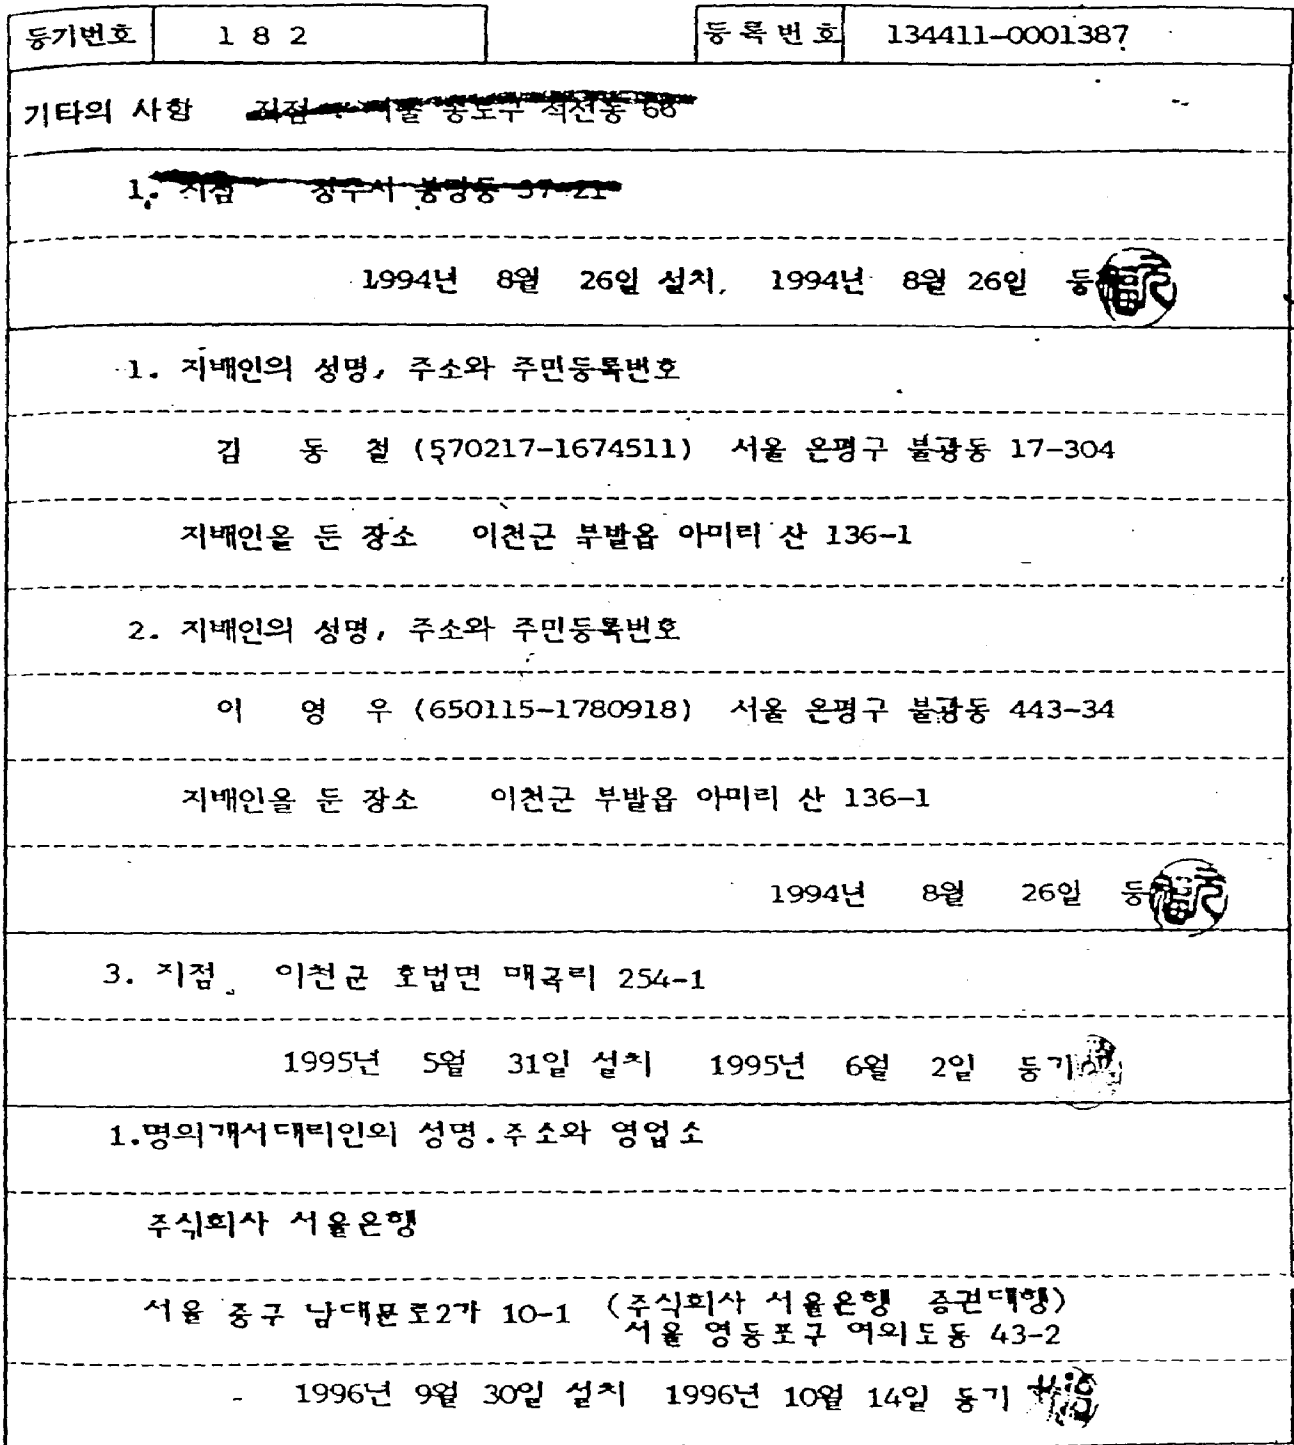 등기번호 1 8 2 등록번호 134411-0001387
기타의 사항
1. 지점
1994년 8월 26일 설치, 1994년 8월 26일 등
1. 지배인의 성명, 주소와 주민등록번호
김 동 철 (570217-1674511) 서울 은평구 불광동 17-304
지배인을 둔 장소 이천군 부발읍 아미리 산 136-1
2. 지배인의 성명, 주소와 주민등록번호
이 영 우 (650115-1780918) 서울 은평구 불광동 443-34
지배인을 둔 장소 이천군 부발읍 아미리 산 136-1
1994년 8월 26일 등
3. 지점 이천군 호법면 매곡리 254-1
1995년 5월 31일 설치 1995년 6월 2일 등기
1.명의개서대리인의 성명.주소와 영업소
주식회사 서울은행
서울 중구 남대문로2가 10-1 (주식회사 서울은행 증권대행)
서울 영등포구 여의도동 43-2
1996년 9월 30일 설치 1996년 10월 14일 등기